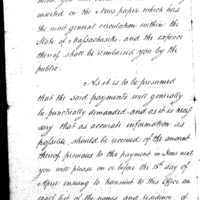 inserted in the News paper which has
the most general circulation within the
State of Massachusetts, and the expence
thereof shall be reimbursed you by the
public.
As it is to be presumed
that the said payments will generally
be punctually demanded and as it is neces
sary that as accurate information as
possible should be received of the amount
thereof previous to the payment in June next,
you will please on or before the 15th day of
April ensuing to transmit to this Office an
exact list of the names and residence of